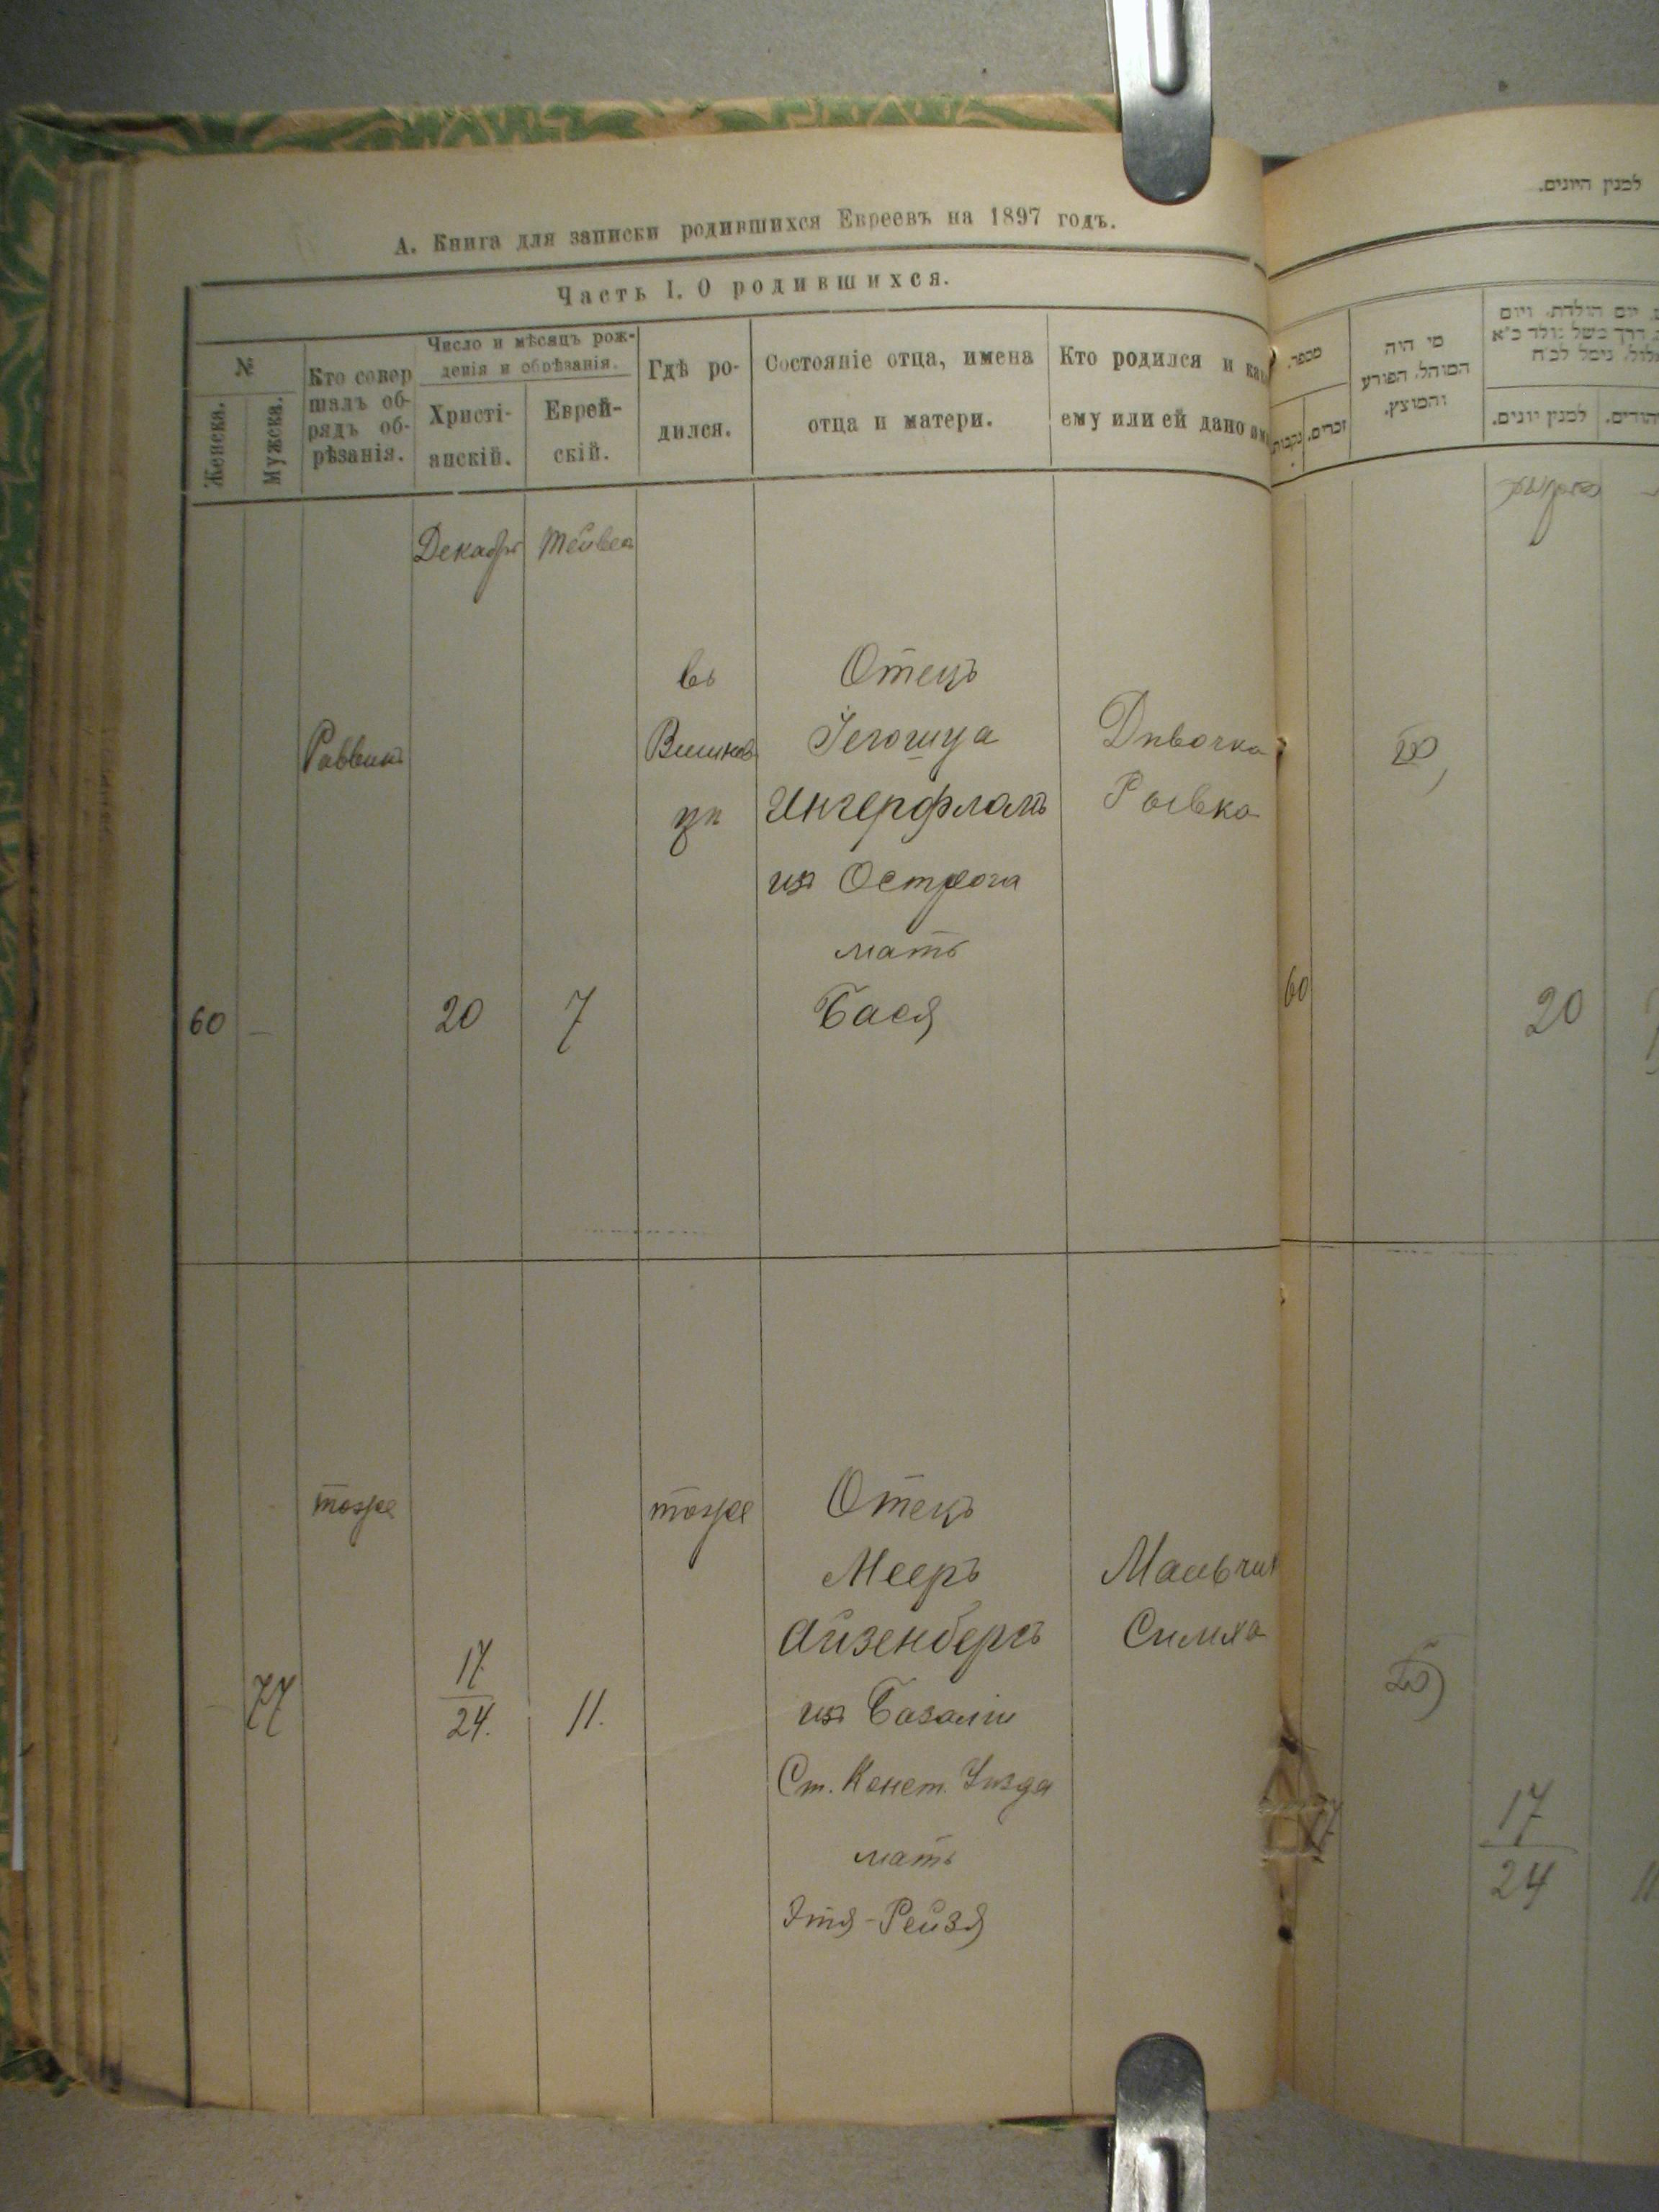 А. Книга для записки родившихся Евреевъ на 1897 годъ.
Часть I. О родившихся.
№
Женска.
Мужска.
Кто совер
шалъ об-
рядъ об-
рѣзанія.
Число и мѣсяцъ рож-
денія и обрѣзанія.
Христі-
анскій.
Еврей-
скій.
Гдѣ ро-
дился.
Состояніе отца, имена
отца и матери.
Кто родился и как
ему или ей дано им
Декабрь
Тейвеса
60
—
Раввинъ
20
7
въ
Вишнев
цѣ
Отецъ
Іегошуа
Ингерфламъ
изъ Острога
мать
Бася
Дѣвочка
Рывка
77
тоже
17
24.
11.
тоже
Отецъ
Мееръ
Айзенбергъ
изъ Базаліи
Ст. Конст. Уѣзда
мать
Этя-Рейзя
Мальчик
Симха
למנין היונים.
מספר.
נקבות
זכרים.
מי היה
המוהל, הפורע
והמוצץ.
יום הולדת, ויום
דרך משל נולד כ״א
אלול, נימל לכ״ח
למנין יונים.
60
20
17
24